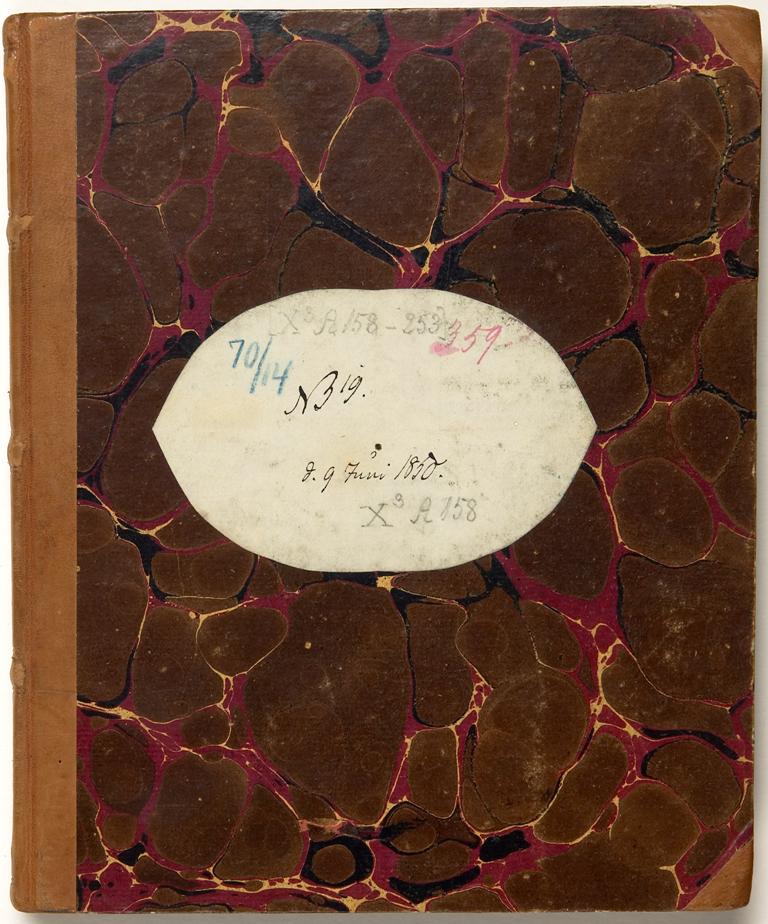 [X³ A 158 - 253]
359
70/14
NB19.
d. 9 Juni 1850.
X³ A 158